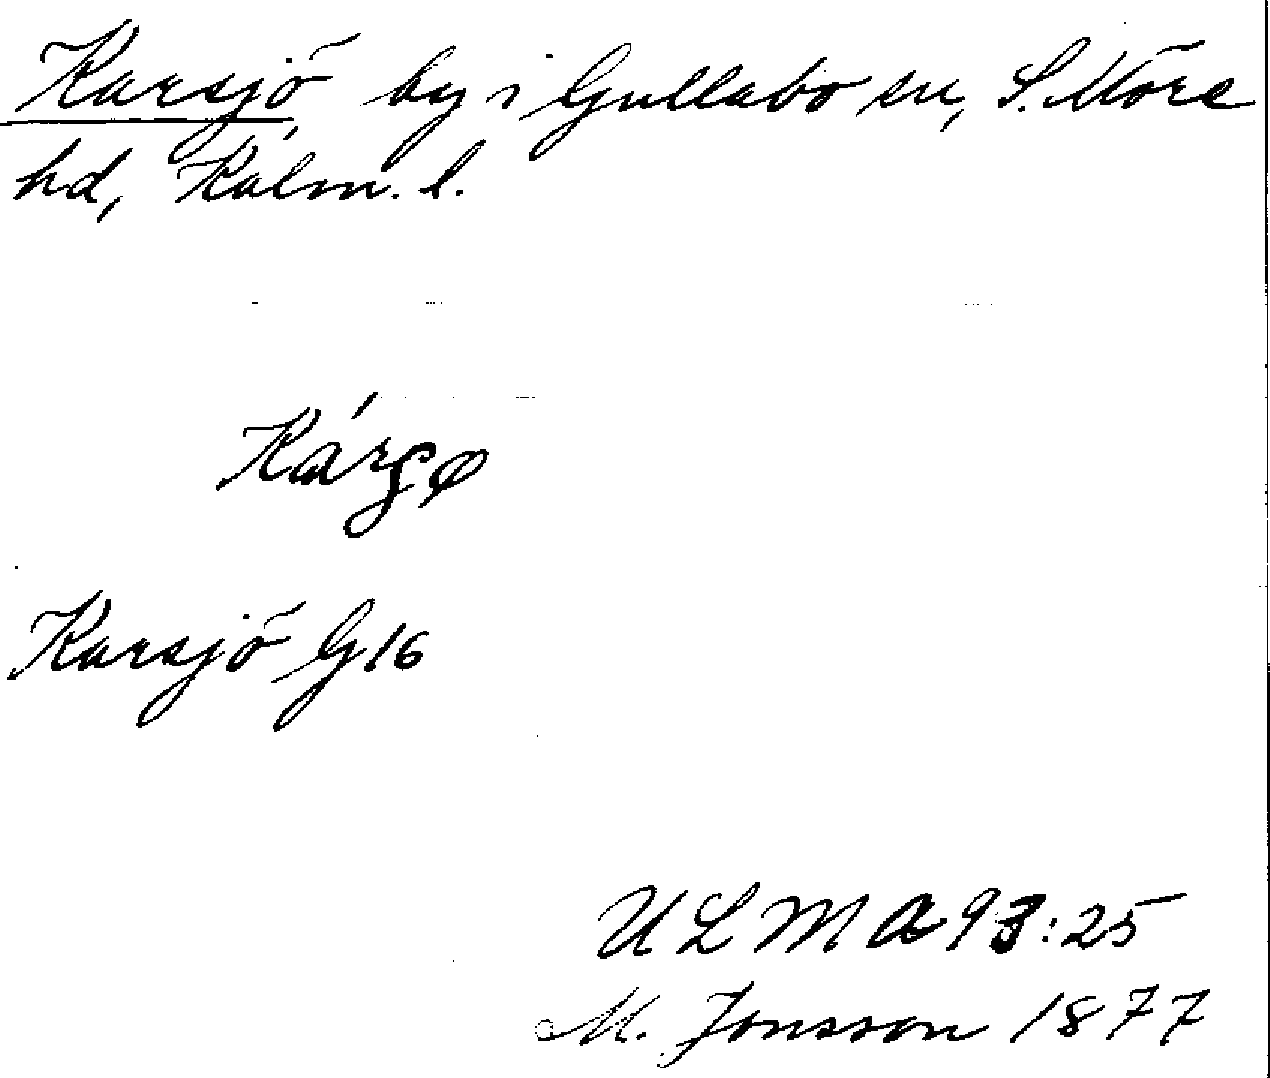 Karsjö by i Gullabo sn, S. Möre
hd, Kalm. l.
Kárgø
Karsjö G16
ULMA 93:25
M. Jonsson 1877